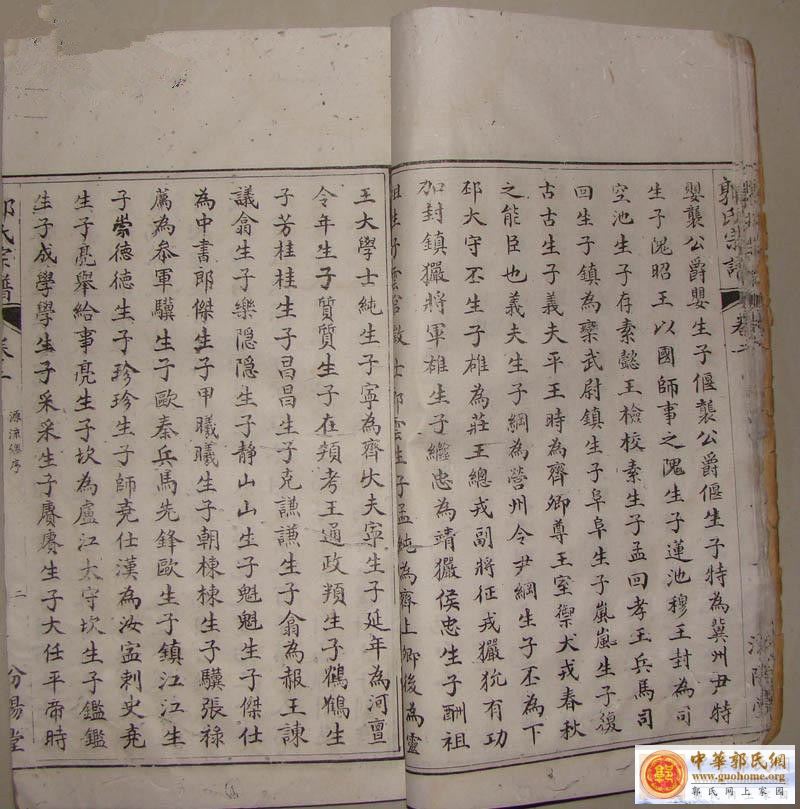 郭氏宗譜
卷一
嬰襲公爵嬰生子偃襲公爵偃生子特為冀州尹特
生子隗昭王以國師事之隗生子蓮池穆王封為司
空池生子存素懿王檢校素生子孟回孝王兵馬司
回生子鎮為欒武尉鎮生子阜阜生子嵐嵐生子復
古古生子義夫平王時為齊卿尊王室禦犬戎春秋
之能臣也義夫生子綱為營州令尹綱生子丕為下
邳大守丕生子雄為莊王總戎副將征戎玁狁有功
加封鎮玁將軍雄生子繼忠為靖玁侯忠生子酬祖
祖生子雲 士 雲生子孟純為齊上卿後為靈
王大學士純生子寧為齊大夫寧生子延年為河亶
令年生子質質生子在頖考王通政頖生子鶴鶴生
子芳桂桂生子昌昌生子克謙謙生子翕為赧王諫
議翕生子樂隠隠生子靜山山生子魁魁生子傑仕
為中書郎傑生子甲曦曦生子朝棟棟生子驥張祿
薦為叅軍驥生子歐秦兵馬先鋒歐生子鎮江江生
子崇德德生子珍珍生子師堯仕漢為汝寍刺史堯
生子亮舉給事亮生子坎為盧江太守坎生子鑑鑑
生子成學學生子采采生子賡賡生子大任平帝時
氏宗譜
卷一
源流總序
二
汾陽堂
中華郭氏網
www.guohome.org
郭氏網上家園